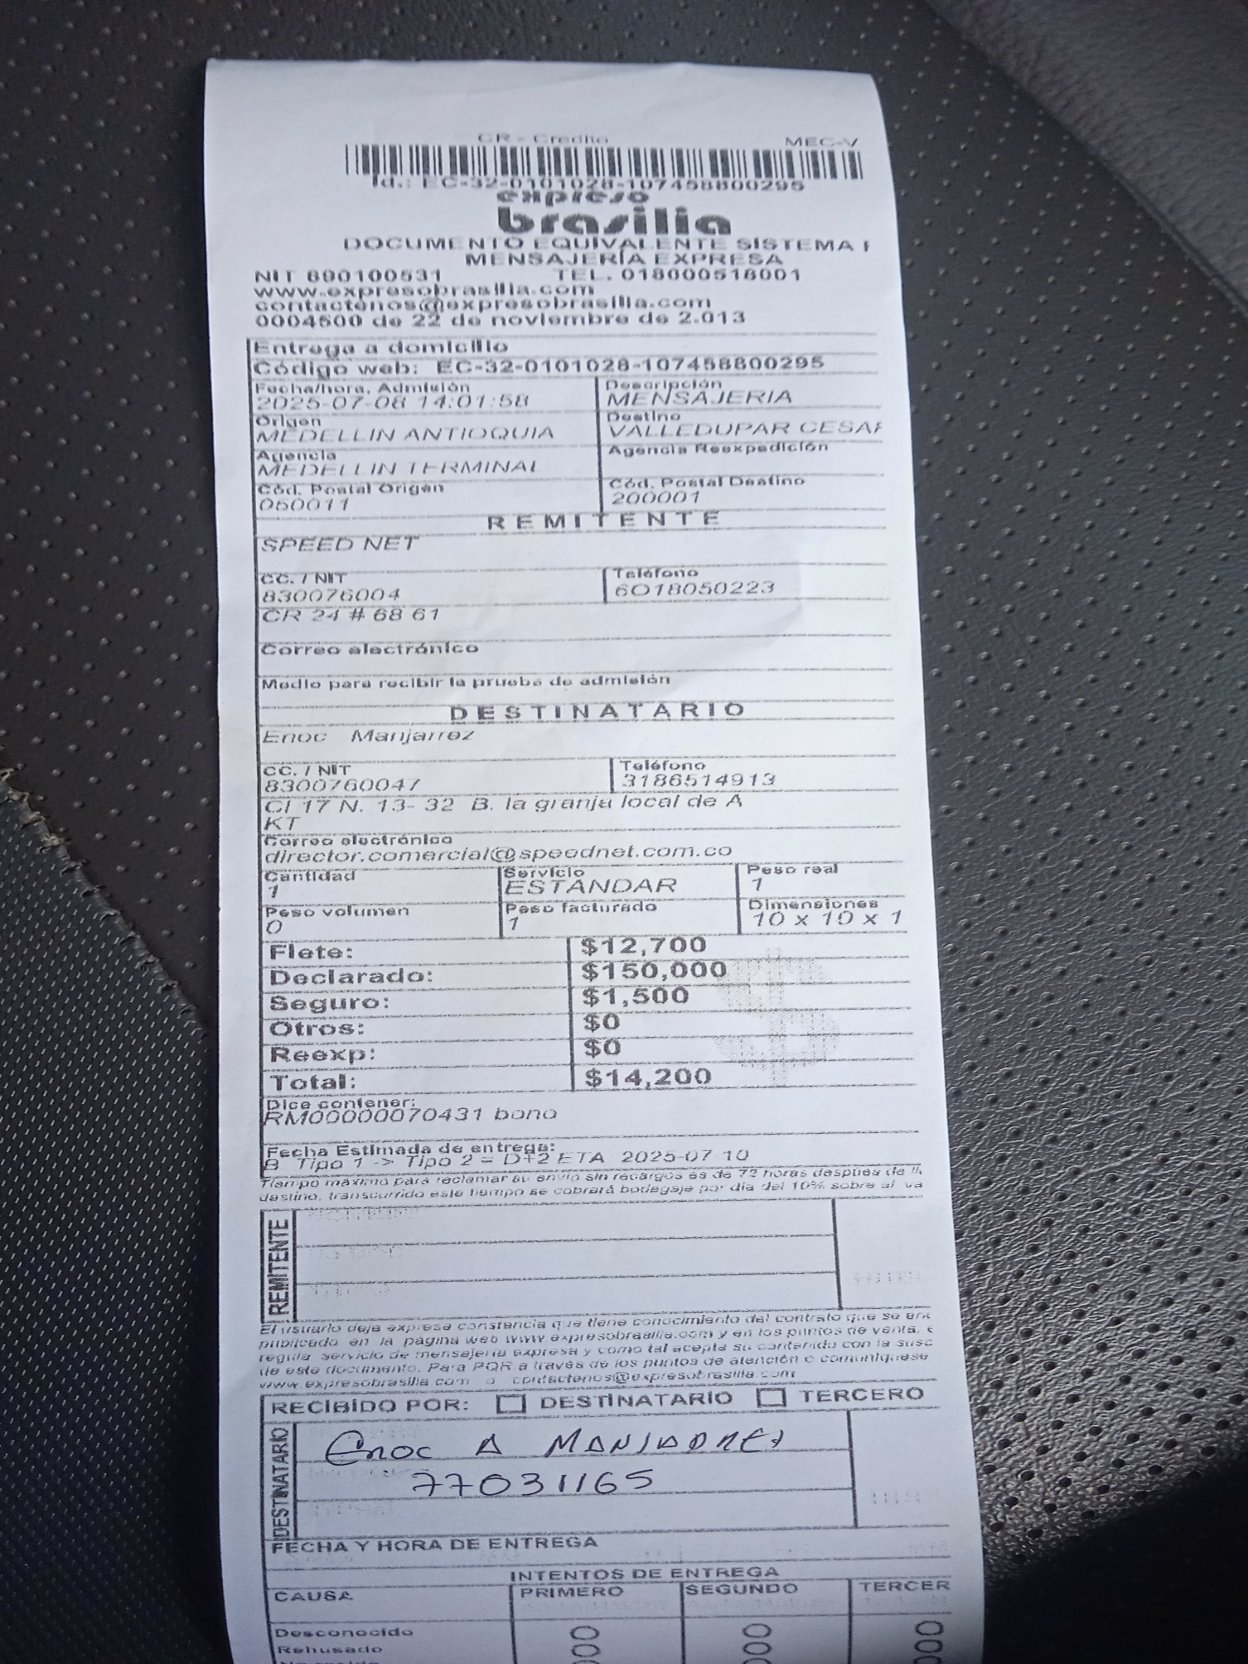 CR - Credito MEC-V
Id.: EC-32-0101028-107458800295
expreso
brasilia
DOCUMENTO EQUIVALENTE SISTEMA
MENSAJERÍA EXPRESA
NIT 890100531 TEL. 018000518001
www.expresobrasilia.com
contactenos@expresobrasilia.com
0004500 de 22 de noviembre de 2.013
Entrega a domicilio
Código web: EC-32-0101028-107458800295
Fecha/hora, Admisión Descripción
2025-07-08 14:01:58 MENSAJERIA
Origen Destino
MEDELLIN ANTIOQUIA VALLEDUPAR CESAR
Agencia Agencia Reexpedición
MEDELLIN TERMINAL
Cód. Postal Origen Cód. Postal Destino
050011 200001
REMITENTE
SPEED NET
CC. / NIT Teléfono
830076004 6O18050223
CR 24 # 68 61
Correo electrónico
Medio para recibir la prueba de admisión
DESTINATARIO
Enoc Manjarrez
CC. / NIT Teléfono
8300760047 3186514913
Cl 17 N. 13- 32 B. la granja local de A
KT
Correo electrónico
director.comercial@speednet.com.co
Cantidad Servicio Peso real
1 ESTANDAR 1
Peso volumen Peso facturado Dimensiones
0 1 10 x 10 x 1
Flete: $12,700
Declarado: $150,000
Seguro: $1,500
Otros: $0
Reexp: $0
Total: $14,200
Dice contener:
RM00000070431 bono
Fecha Estimada de entrega:
B Tipo 1 -> Tipo 2 = D+2 ETA 2025-07-10
Tiempo máximo para reclamar su envío sin recargos es de 72 horas después de
destino, transcurrido este tiempo se cobrará bodegaje por día del 10% sobre el va
REMITENTE
El usuario deja expresa constancia que tiene conocimiento del contrato que se en
publicado en la página web www.expresobrasilia.com y en los puntos de venta,
regula servicio de mensajería expresa y como tal acepta su contenido con la susc
de este documento. Para PQR a través de los puntos de atención o comuníquese
www.expresobrasilia.com o contactenos@expresobrasilia.com
RECIBIDO POR: DESTINATARIO TERCERO
DESTINATARIO
Enoc A MANJARREZ
77031165
FECHA Y HORA DE ENTREGA
INTENTOS DE ENTREGA
CAUSA PRIMERO SEGUNDO TERCER
Desconocido
Rehusado